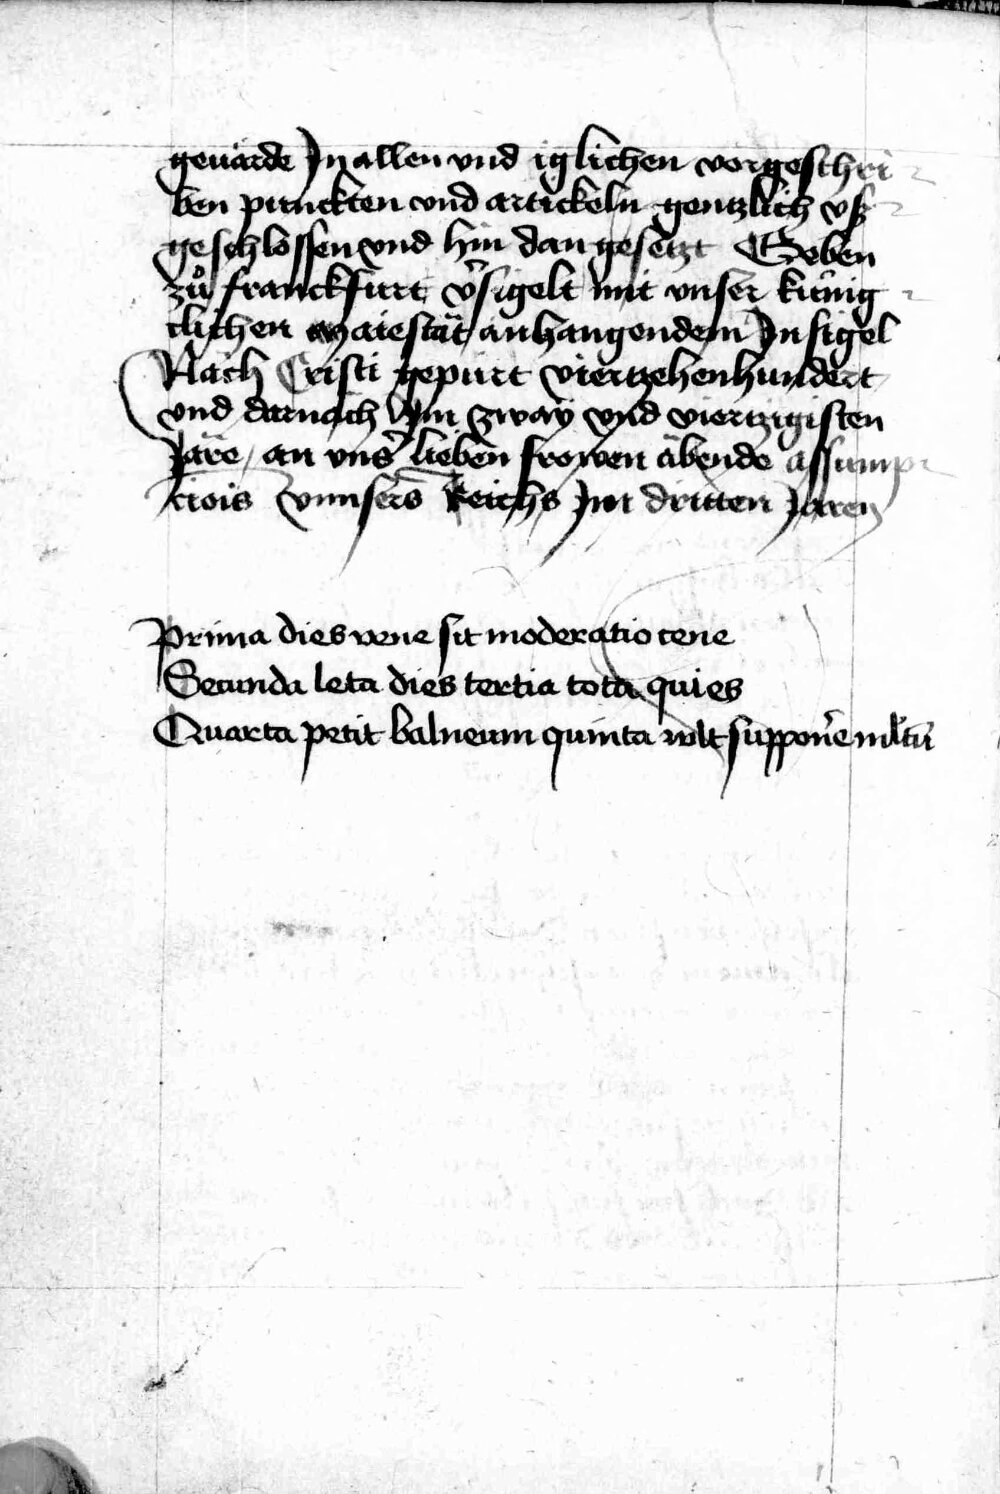 geuärde Jn allen vnd iglichen vorgeschri
ben punckten vnd artickeln gentzlich vß
geschlossen vnd hin dan gesetzt Geben
zů franckfurt v̾sigelt mit vnser kúnig
clichen maiestät anhangendem Jnsigel
Näch Cristi gepurt viertzehenhundert
vnd darnäch Jm zway vnd viertzigisten
Järe / an vns̾ lieben frowen äbende assump
ciois vnnsers Reichs Jm dritten Jaren
Prima dies vene sit moderatio cene
Secunda leta dies tertia tota quies
Quarta petit balneum quinta wlt suppon̾e